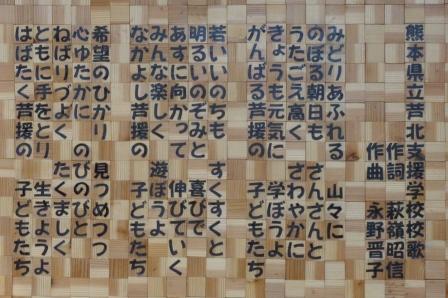 熊本県立芦北支援学校校歌
作詞 萩嶺昭信
作曲 永野晋子
みどりあふれる 山々に
のぼる朝日も さんさんと
うたごえ高く さわやかに
きょうも元気に 学ぼうよ
がんばる芦援の 子どもたち
若いいのちも すくすくと
明るいのぞみと 喜びで
あすに向かって 伸びていく
みんな楽しく 遊ぼうよ
なかよし芦援の 子どもたち
希望のひかり 見つめつつ
心ゆたかに のびのびと
ねばりづよく たくましく
ともに手をとり 生きようよ
はばたく芦援の 子どもたち